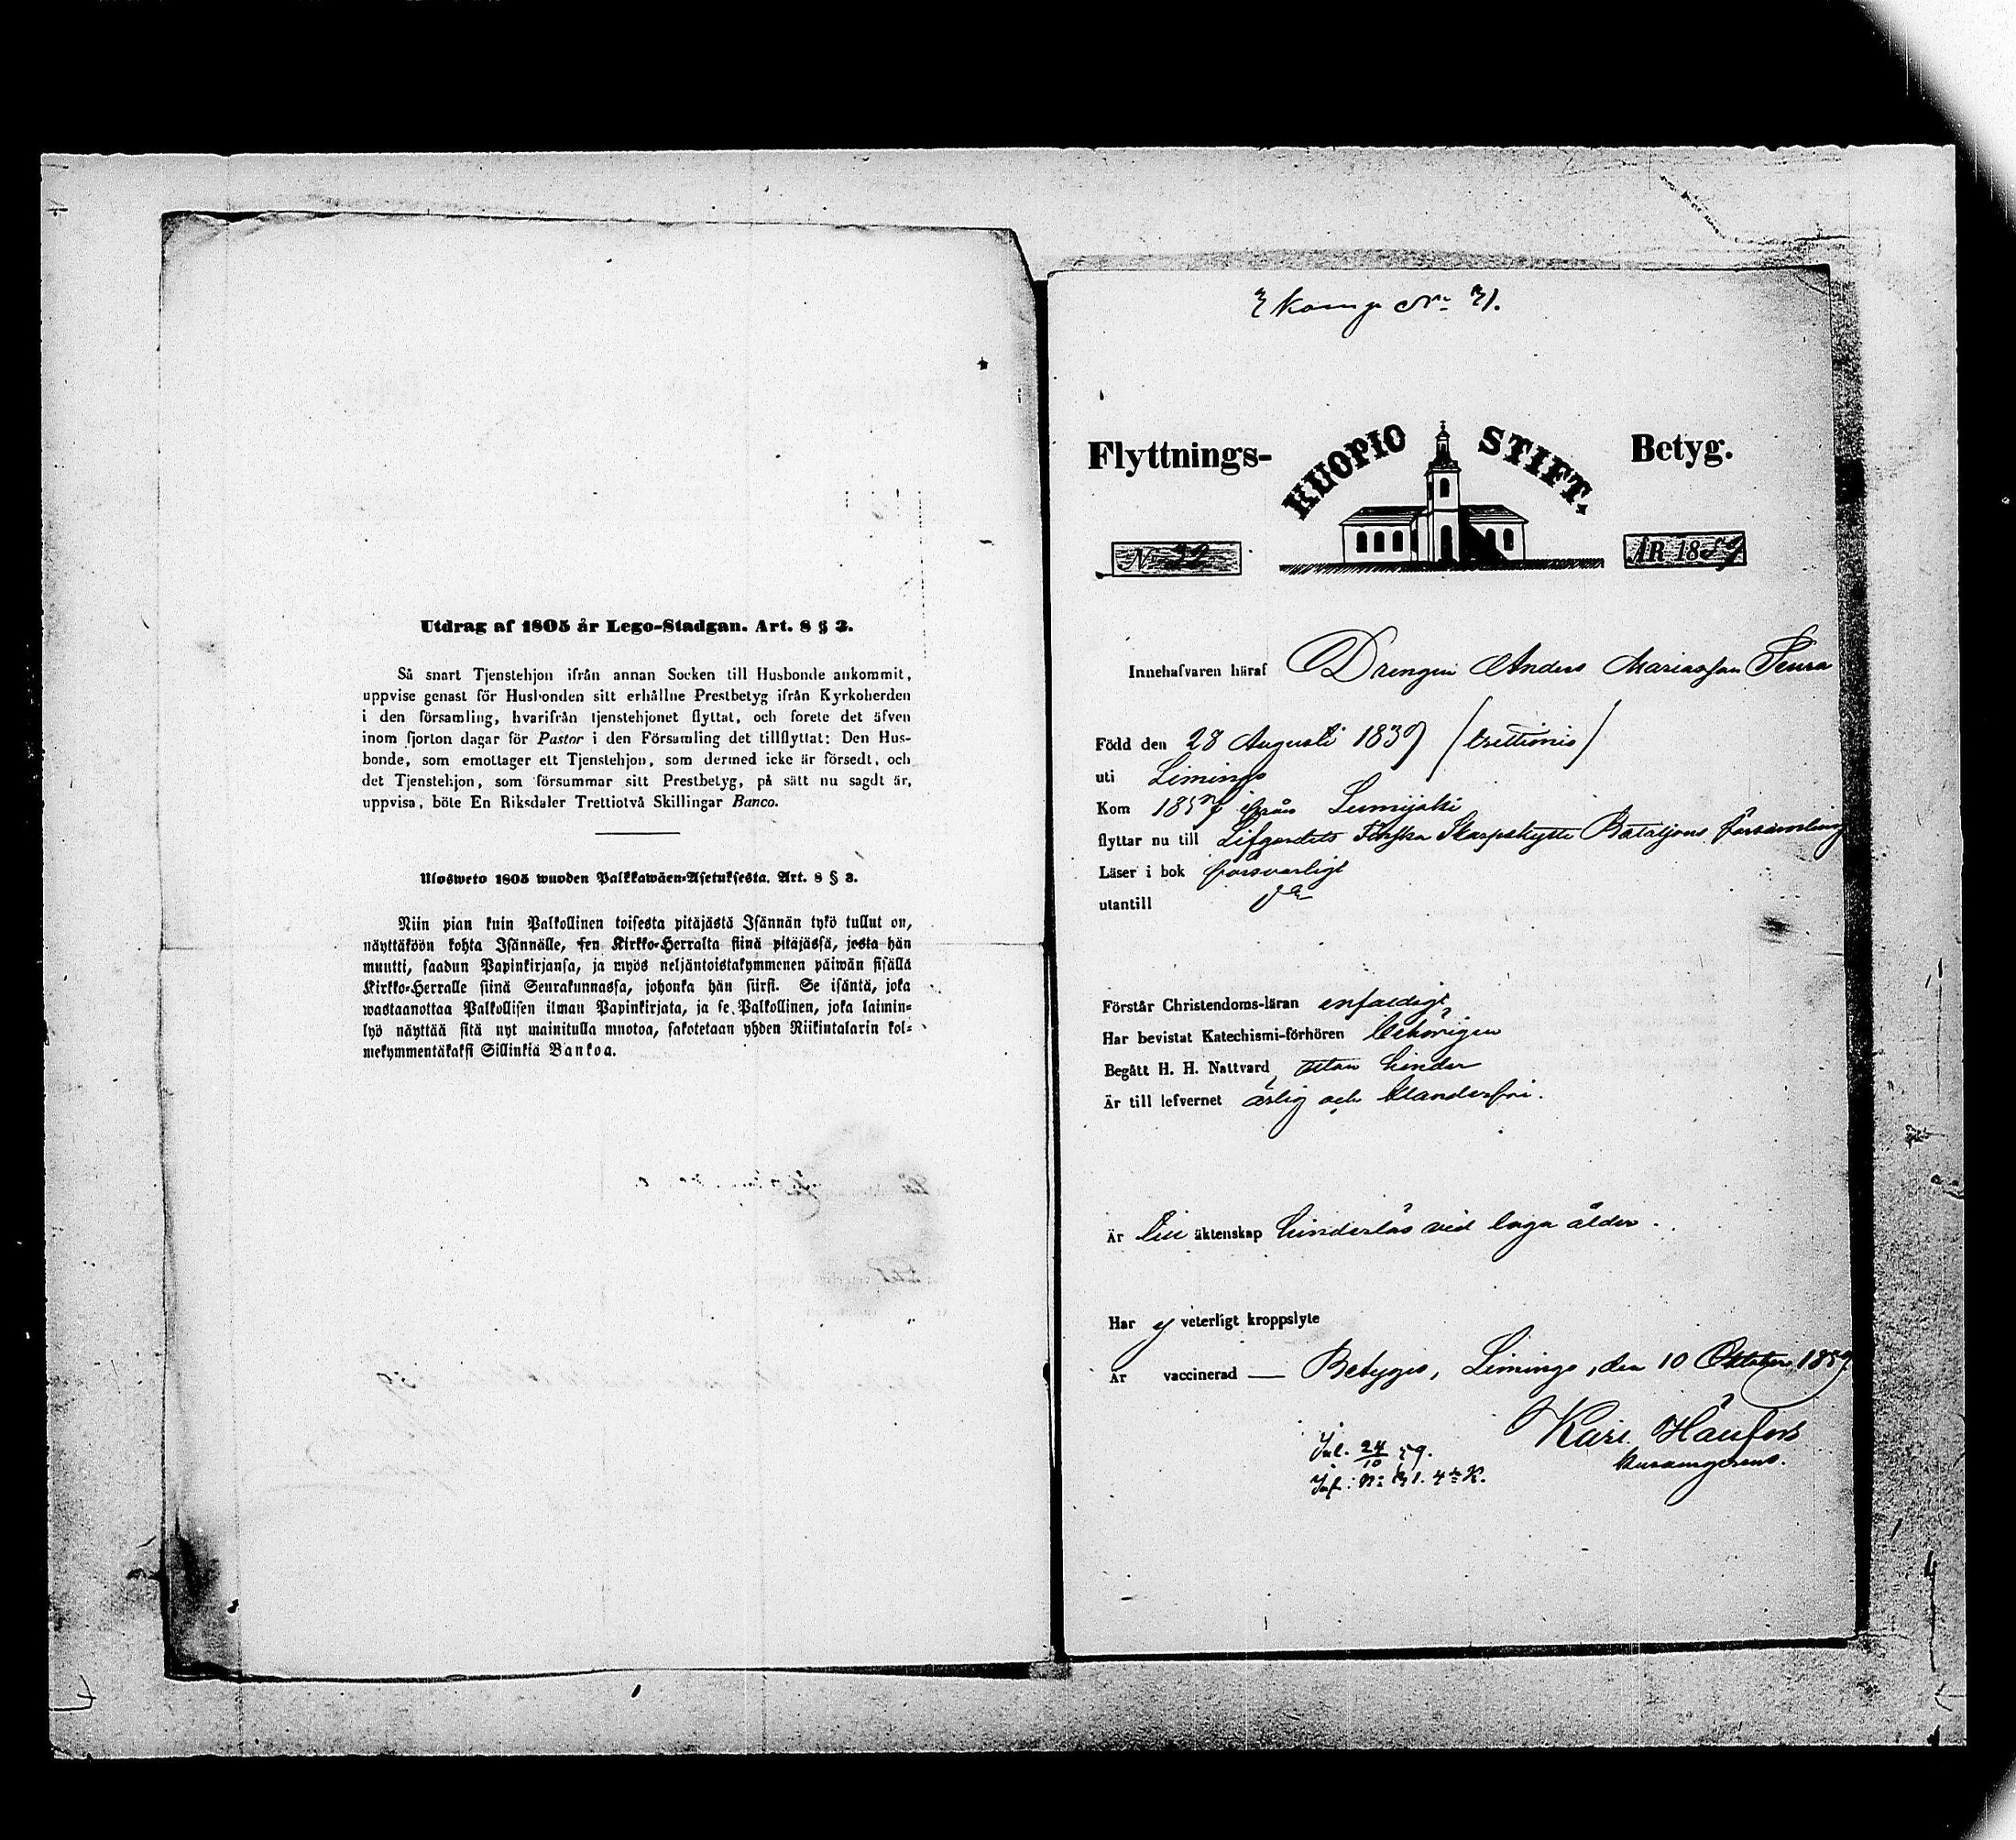 Utdrag af 1805 år Lego-Stadgan. Art. 8 § 3.
Så snart Tjenstehjon ifrån annan Socken till Husbonde ankommit,
uppvise genast för Husbonden sitt erhållne Prestbetyg ifrån Kyrkoherden
i den församling, hvarifrån tjenstehjonet flyttat, och forete det äfven
inom fjorton dagar för Pastor i den Församling det tillflyttat: Den Hus-
bonde, som emottager ett Tjenstehjon, som dermed icke är försedt, och
det Tjenstehjon, som försummar sitt Prestbetyg, på sätt nu sagdt är,
uppvisa, böte En Riksdaler Trettiotvå Skillingar Banco.
Ulosweto 1805 wuoden Palkkawäen-Asetuksesta. Art. 8 § 3.
Niin pian kuin Palkollinen toisesta pitäjästä Isännän tykö tullut on,
näyttäköön kohta Isännälle, sen Kirkko-Herralta siinä pitäjässä, josta hän
muutti, saadun Papinkirjansa, ja myös neljäntoistakymmenen päiwän sisällä
Kirkko-Herralle siinä Seurakunnassa, johonka hän siirsi. Se isäntä, joka
wastaanottaa Palkollisen ilman Papinkirjata, ja se Palkollinen, joka laimin-
lyö näyttää sitä nyt mainitulla muotoa, sakotetaan yhden Riikintalarin kol-
mekymmentäkaksi Sillinkiä Bankoa.
Komp No 31.
Flyttnings- KUOPIO STIFT. Betyg.
N 32 ÅR 1859
Innehafvaren häraf Drengen Anders Mariasson Seura
Född den 28 Augusti 1839 (trettionio)
uti Limingo
Kom 1857 ifrån Lumijoki
flyttar nu till Lifgardets Finska Skarpskytte Bataljons församling
Läser i bok försvarligt
utantill ja
Förstår Christendoms-läran enfaldigt
Har bevistat Katechismi-förhören behörigen
Begått H. H. Nattvard utan hinder
Är till lefvernet ärlig och klanderfri.
Är till äktenskap hinderlös vid laga ålder.
Har ej veterligt kroppslyte
Är vaccinerad — Betygas, Limingo, den 10 Oktober 1859.
Karl
Inl. 24/10 59.
Inf: No 31. 4de K.